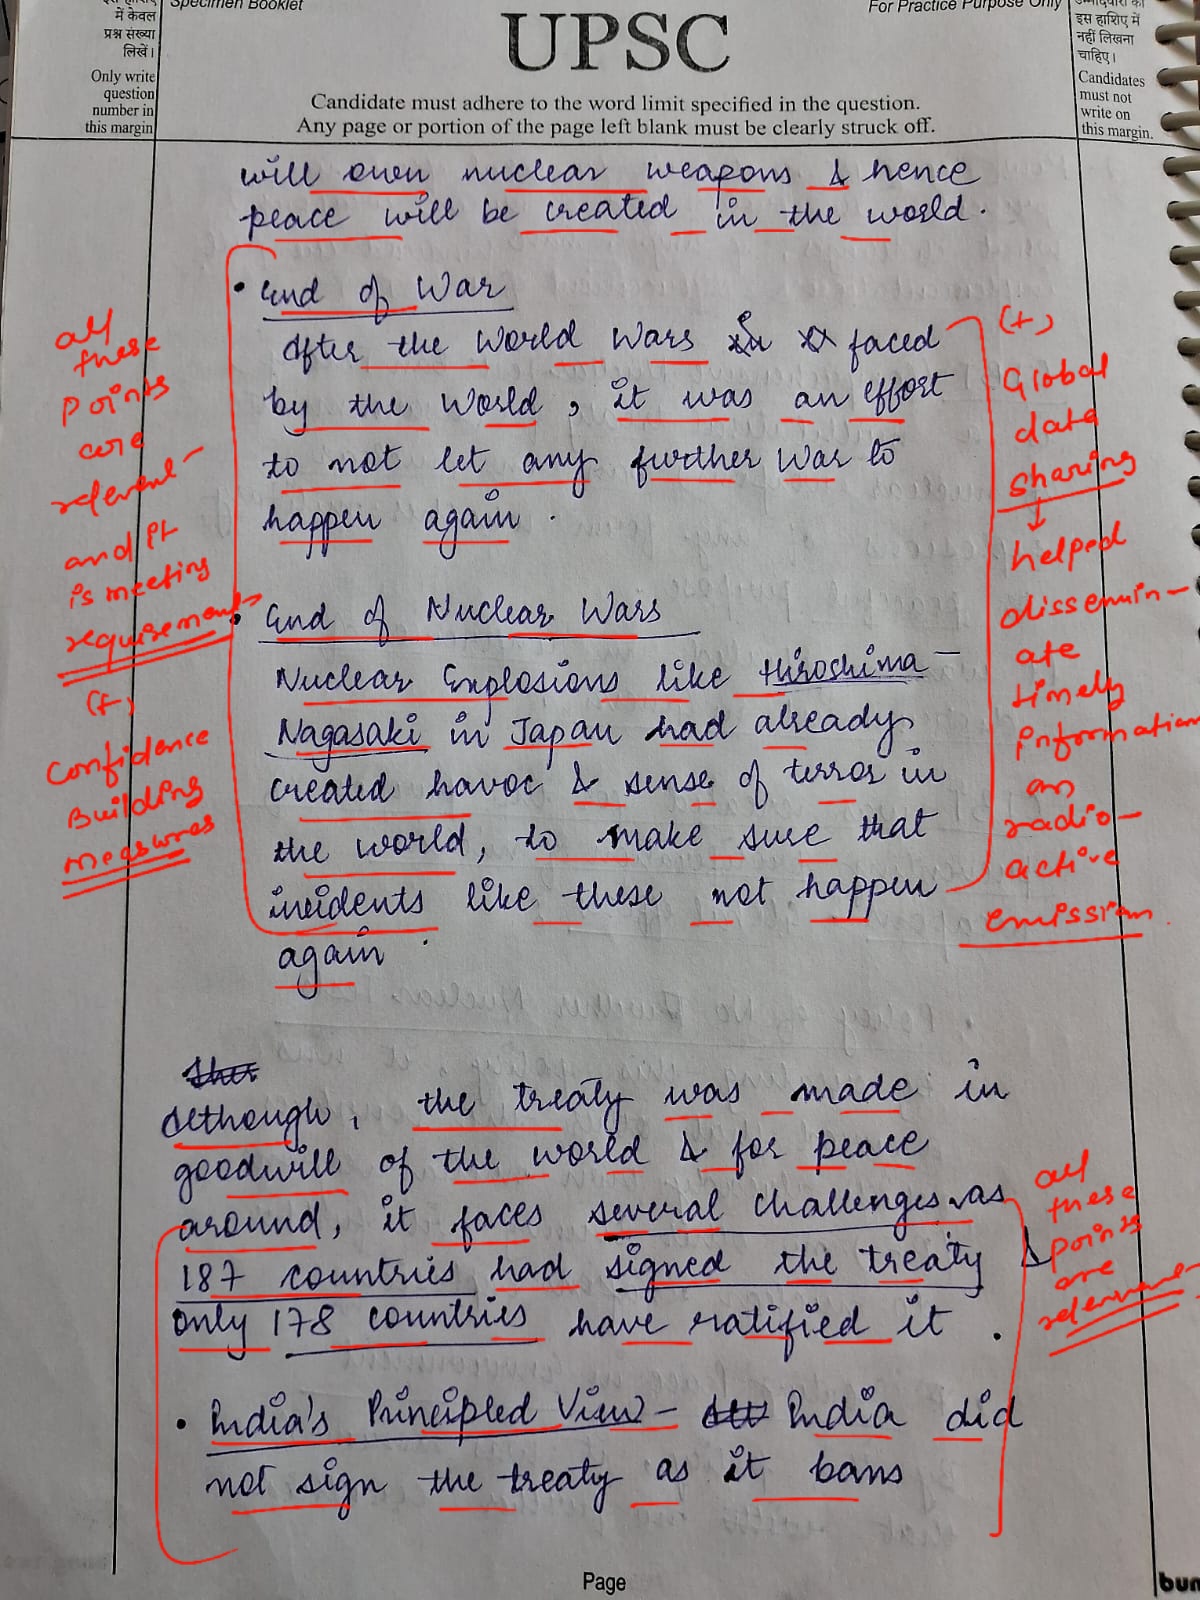 में केवल
प्रश्न संख्या
लिखें।
Only write
question
number in
this margin
Specimen Booklet
For Practice Purpose Only
UPSC
Candidate must adhere to the word limit specified in the question.
Any page or portion of the page left blank must be clearly struck off.
उम्मीदवारों को
इस हाशिए में
नहीं लिखना
चाहिए।
Candidates
must not
write on
this margin.
will own nuclear weapons & hence
peace will be created in the world.
• End of War
After the World Wars faced
by the World, it was an effort
to not let any further War to
happen again.
• End of Nuclear Wars
Nuclear Explosions like Hiroshima-
Nagasaki in Japan had already
created havoc & sense of terror in
the world, to make sure that
incidents like these not happen
again.
all
these
points
are
relevant
and it
is meeting
requirement
(+)
Confidence
Building
measures
(+)
Global
data
sharing
↓
helped
dissemin-
ate
timely
information
on
radio-
active
emission.
Although, the treaty was made in
goodwill of the world & for peace
around, it faces several challenges as
187 countries had signed the treaty &
only 178 countries have ratified it.
• India's Principled View - India did
not sign the treaty as it bans
all
these
points
are
relevant
Page